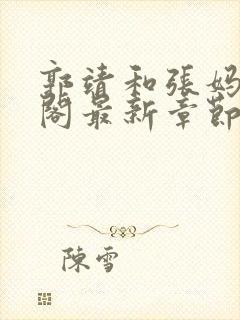 郭靖和張媽
閣最新章節
陳雪